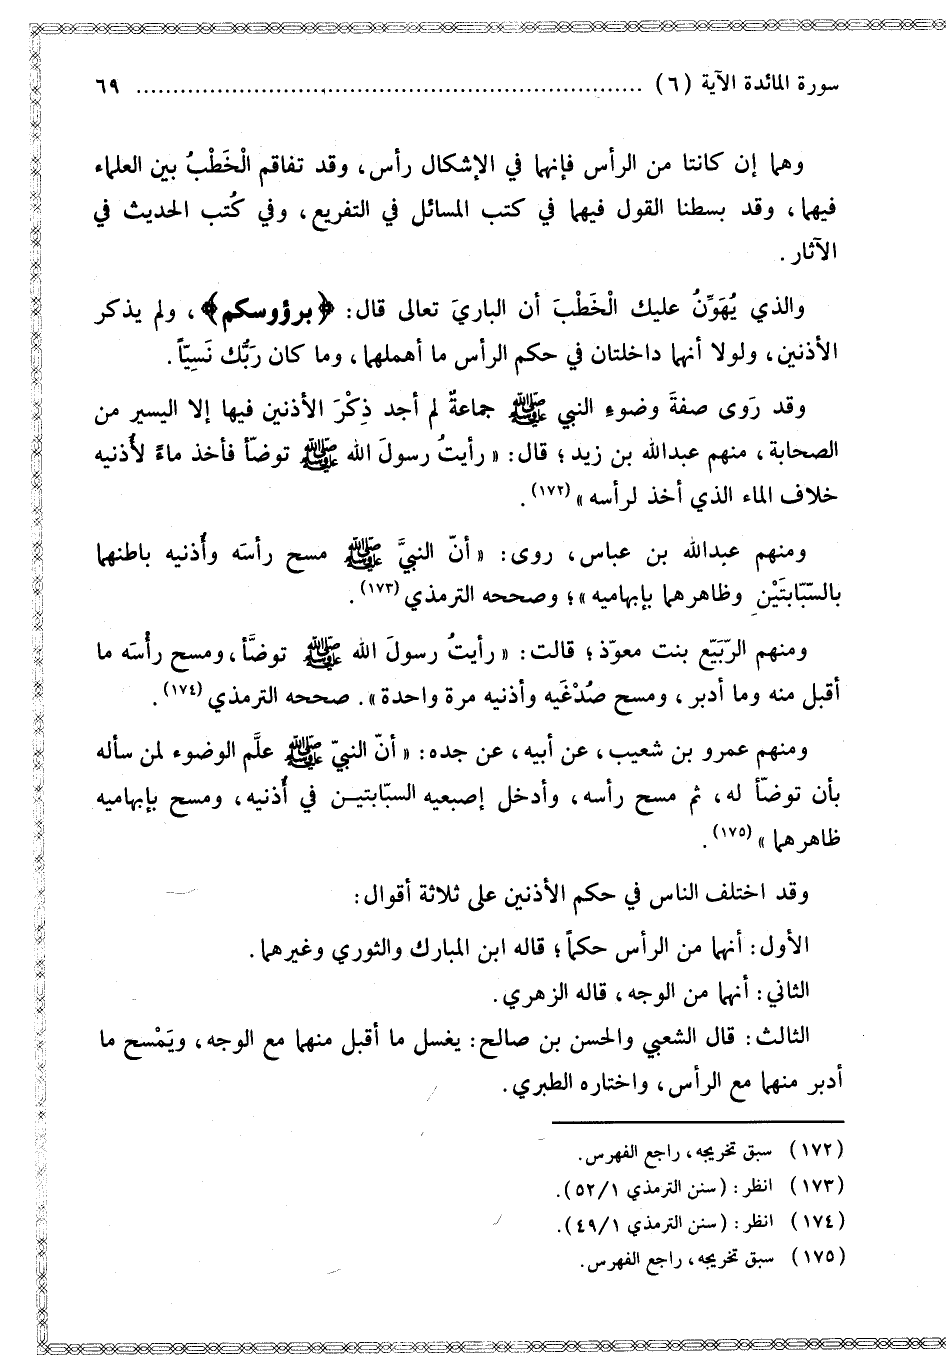 سورة المائدة الآية (٦) ............................................................ ٦٩
وهما إن كانتا من الرأس فإنهما في الإشكال رأس، وقد تفاقم الْخَطْبُ بين العلماء
فيهما، وقد بسطنا القول فيهما في كتب المسائل في التفريع، وفي كُتب الحديث في
الآثار.
والذي يُهَوِّنُ عليك الْخَطْبَ أن الباريَ تعالى قال: ﴿برؤوسكم﴾، ولم يذكر
الأذنين، ولولا أنهما داخلتان في حكم الرأس ما أهملهما، وما كان رَبُّك نَسِيّاً.
وقد رَوى صفةَ وضوءِ النبي ﷺ جماعةٌ لم أجد ذِكْرَ الأذنين فيها إلا اليسير من
الصحابة، منهم عبدالله بن زيد؛ قال: «رأيتُ رسولَ الله ﷺ توضّأ فأخذ ماءً لأُذنيه
خلاف الماء الذي أخذ لرأسه»(١٧٢).
ومنهم عبدالله بن عباس، روى: «أنّ النبيَّ ﷺ مسح رأسَه وأُذنيه باطنهما
بالسّبّابتَيْنِ وظاهرهما بإبهاميه»؛ وصححه الترمذي(١٧٣).
ومنهم الرّبَيّع بنت معوّذ؛ قالت: «رأيتُ رسولَ الله ﷺ توضَّأ، ومسح رأْسَه ما
أقبل منه وما أدبر، ومسح صُدْغَيه وأذنيه مرة واحدة». صححه الترمذي(١٧٤).
ومنهم عمرو بن شعيب، عن أبيه، عن جده: «أنّ النبيّ ﷺ علَّم الوضوء لمن سأله
بأن توضّأ له، ثم مسح رأسه، وأدخل إصبعيه السبّابتين في أُذنيه، ومسح بإبهاميه
ظاهرهما»(١٧٥).
وقد اختلف الناس في حكم الأذنين على ثلاثة أقوال:
الأول: أنهما من الرأس حكماً؛ قاله ابن المبارك والثوري وغيرهما.
الثاني: أنهما من الوجه، قاله الزهري.
الثالث: قال الشعبي والحسن بن صالح: يغسل ما أقبل منهما مع الوجه، ويَمْسح ما
أدبر منهما مع الرأس، واختاره الطبري.
(١٧٢) سبق تخريجه، راجع الفهرس.
(١٧٣) انظر: (سنن الترمذي ٥٢/١).
(١٧٤) انظر: (سنن الترمذي ٤٩/١).
(١٧٥) سبق تخريجه، راجع الفهرس.